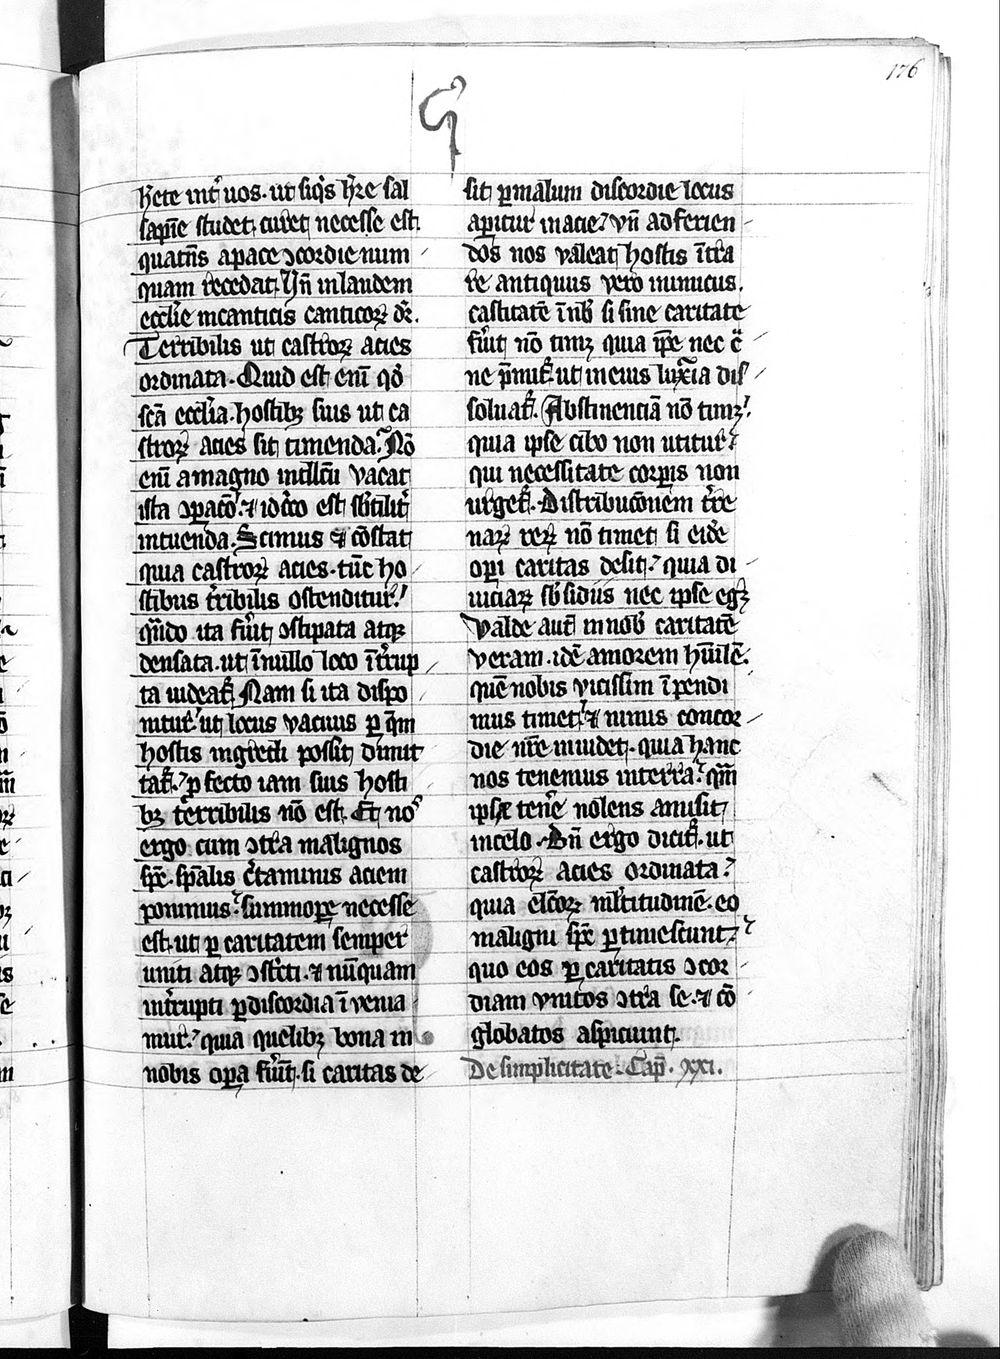 176
hete int' uos. ut siq's h're sal
sapīe studet. curet necesse est
quatn̄s a pace ↄcordie num
quam recedat. Vn̄ in laudem
eccl'ie in canticis canticoꝝ dr̄.
Terribilis ut castroꝝ acies
ordinata. Quid est enī qd'
scā eccl'ia. hostibꝫ suis ut ca
stroꝝ acies sit timenda? Nō
enī a magno intll'cu vacat
ista ↄꝑacō. ⁊ idcō est sbtilit'
intuenda. Scimus ⁊ cōstat
quia castroꝝ acies. tūc ho
stibus t'ribilis ostenditur.
qn̄do ita fu'it ↄstipata atqꝫ
densata. ut ī nullo loco īt'rup
ta uideat'. Nam si ita dispo
nitur. ut locus vacuus ꝑ quē
hostis ingredi possit dimit
tat'. ꝓfecto iam suis hosti
bꝫ terribilis nō est. Et nos
ergo cum ↄtra malignos
sp̄c. sp̄alis c'taminis aciem
ponimus. summoꝑe necesse
est. ut ꝑ caritatem semper
uniti atqꝫ ↄst'cti. ⁊ nūquam
int'rupti ꝑ discordia īvenia
mur. quia quelibꝫ bona in
nobis oꝑa fu'īt. si caritas de
sit ꝑ malum discordie locus
aꝑitur in acie. vn̄ ad ferien
dos nos valeat hostis īt̄ra
re antiquus vero inimicus.
castitatē ī nob' si sine caritate
fu'it nō timꝫ quia ip̄e nec c̄
ne p̄mit'. ut in eius luxuria dis
soluat'. Abstinenciā nō timꝫ.
quia ipse cibo non utitur.
qui necessitate corꝑis non
urget'. Distribucōnem t're
naꝝ reꝝ nō timet si eide
oꝑi caritas desit. quia di
uiciaꝝ sbsidiis nec ipse egꝫ
Valde aut' in nob' caritatē
veram. idē amorem hūilē.
quē nobis vicissim īpendi
mus timet. ⁊ nimis concor
die nr̄e inuidet. quia hanc
nos tenemus in terra. quā
ipse ten'e nolens amisit
in celo. Bn̄ ergo dicit'. ut
castroꝝ acies ordinata.
quia el'coꝝ ml'titudinē. eo
maligni sp̄c ꝑtimescunt.
quo eos ꝑ caritatis ↄcor
diam vnitos ↄtra se. ⁊ cō
globatos aspiciunt.
De simplicitate. Cap̄. xxi.